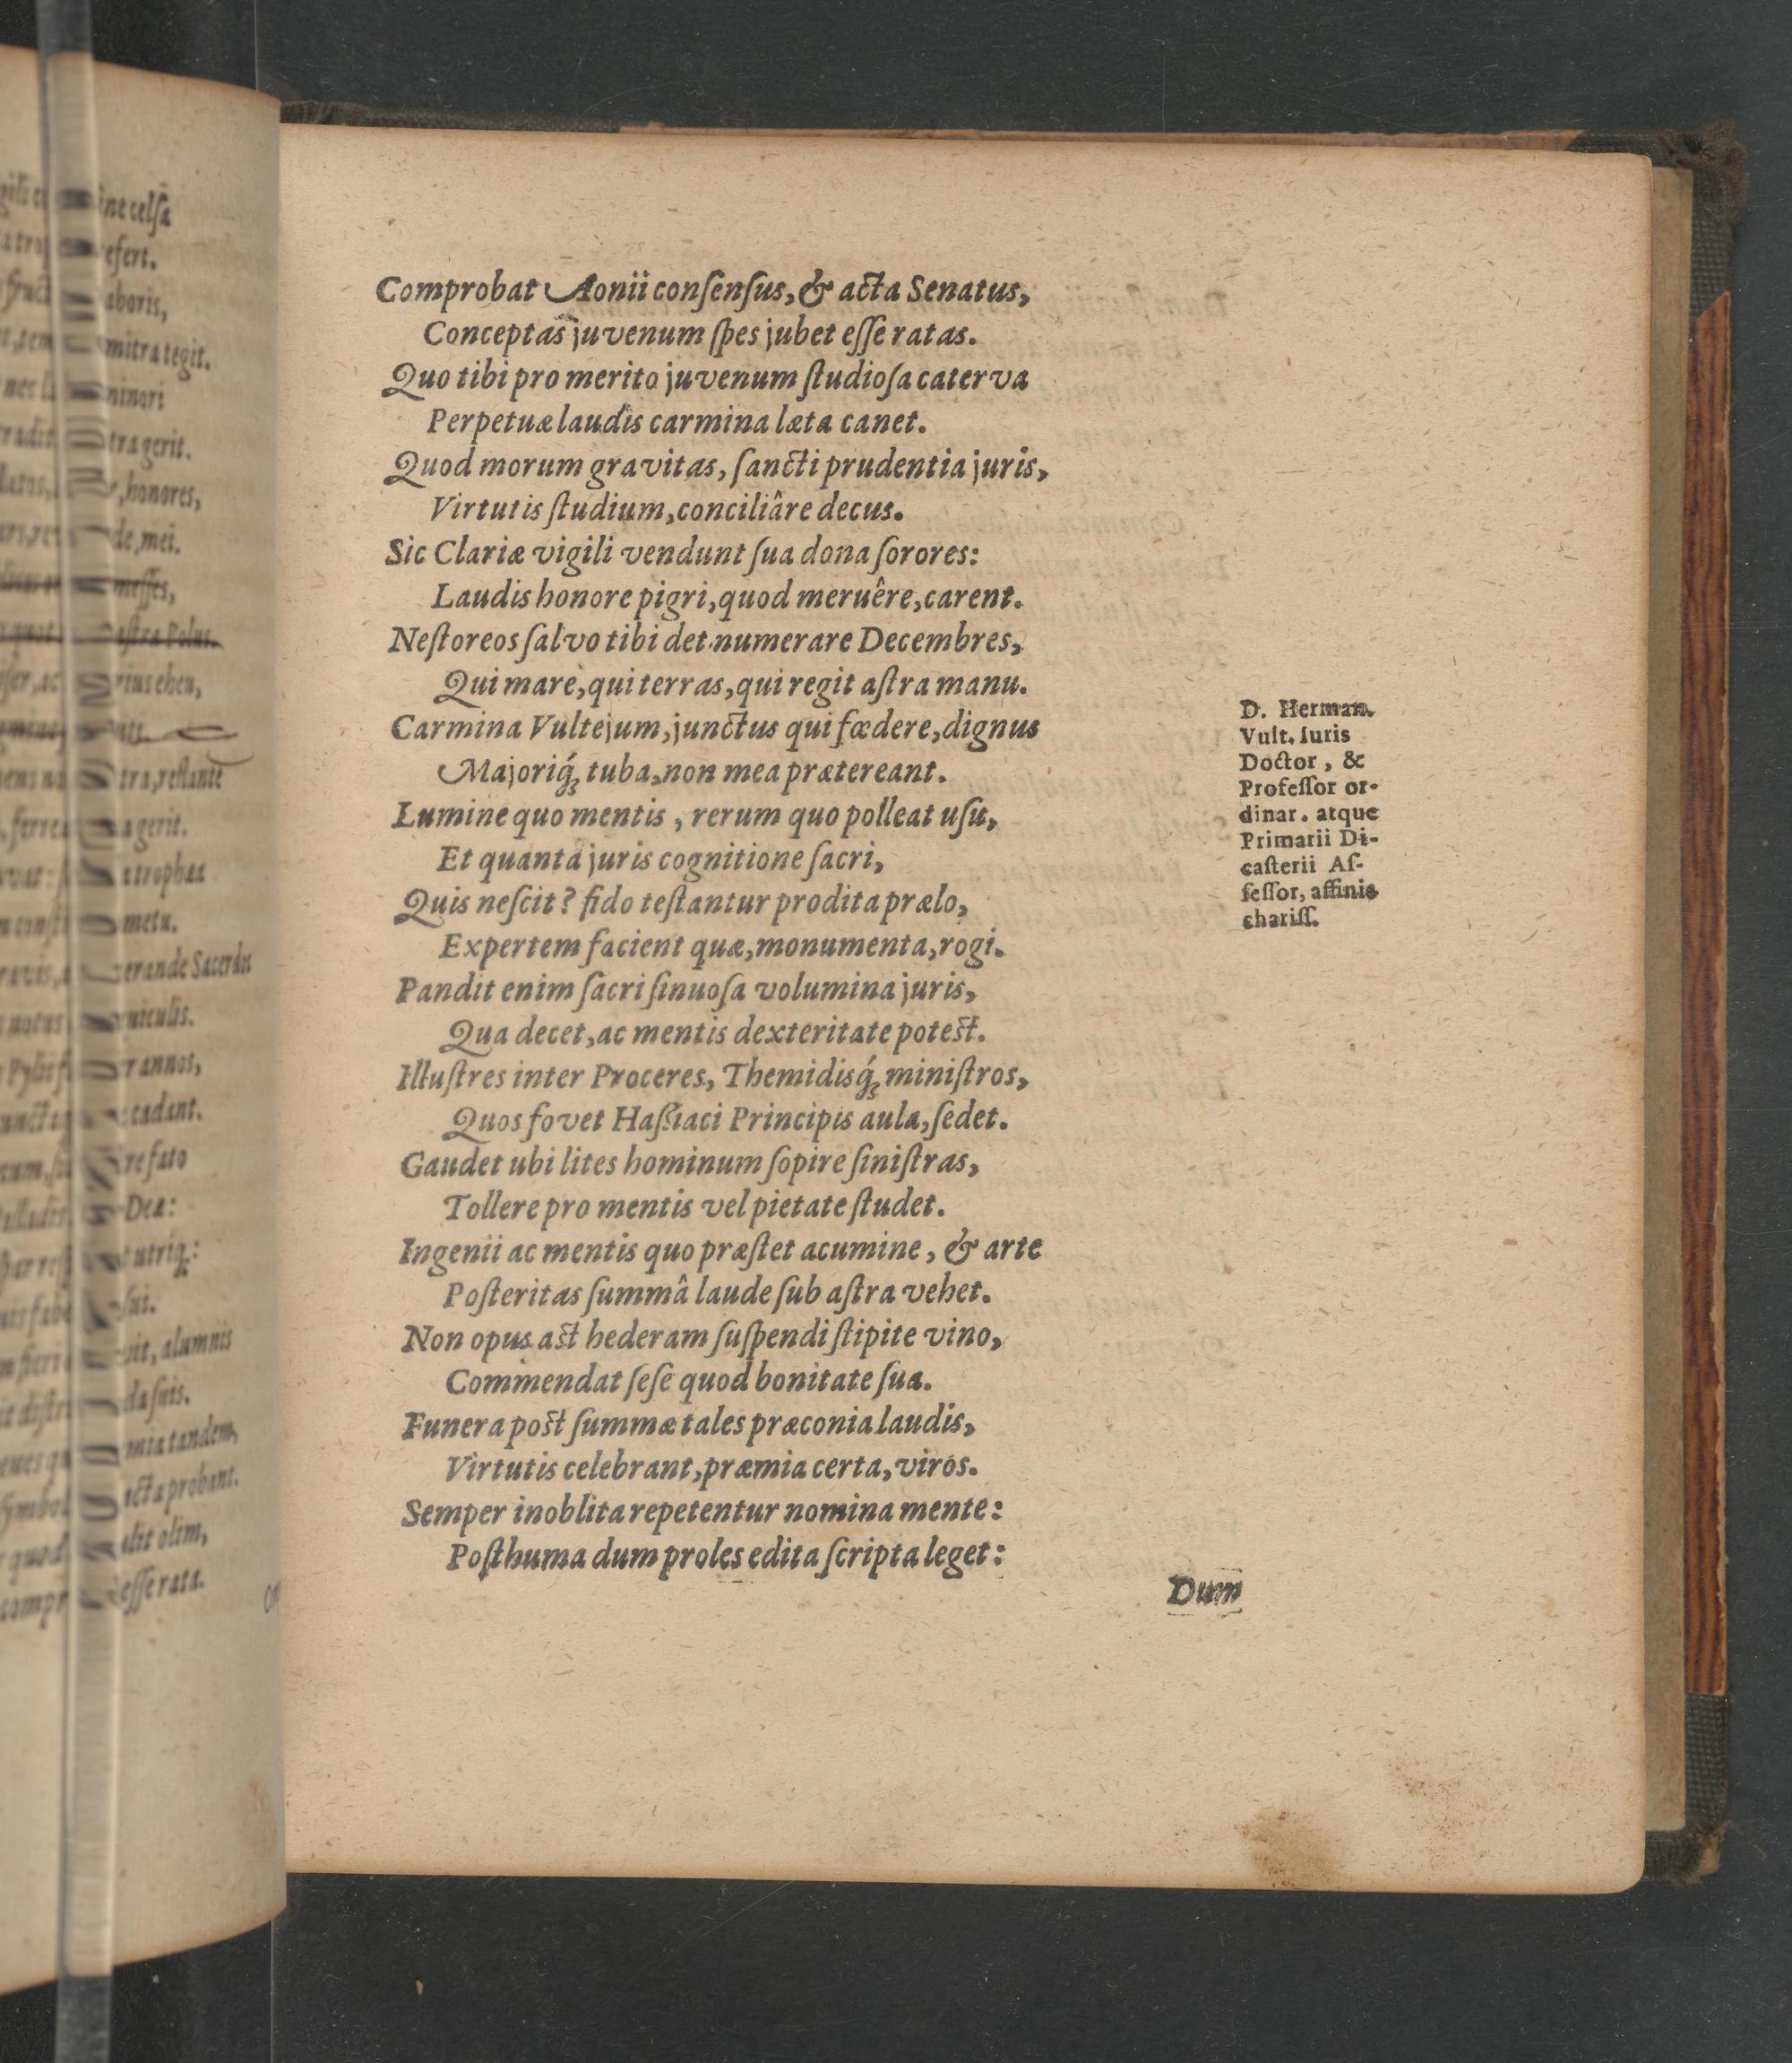 ine celsa
efert.
aboris,
mitra tegit.
minori
tra gerit.
honores,
de, mei.
messes,
astra Polus.
rius eheu,
tra, restante
a gerit.
atrophæa
metu.
erande Sacerdos
niculis.
r annos,
cadant.
re fato
Dea:
utriq;:
sui.
vit, alumnis
da suis.
mia tandem,
ecta probant.
olim,
esse rata.
Comprobat Aonii conſenſus, & acta Senatus,
Conceptas juvenum ſpes jubet eſſe ratas.
Quo tibi pro merito juvenum ſtudioſa caterva
Perpetuæ laudis carmina læta canet.
Quod morum gravitas, ſancti prudentia juris,
Virtutis ſtudium, conciliâre decus.
Sic Clariæ vigili vendunt ſua dona ſorores:
Laudis honore pigri, quod meruêre, carent.
Neſtoreos ſalvo tibi det numerare Decembres,
Qui mare, qui terras, qui regit aſtra manu.
Carmina Vultejum, junctus qui fœdere, dignus
Majoriq́; tuba, non mea prætereant.
Lumine quo mentis, rerum quo polleat uſu,
Et quantâ juris cognitione ſacri,
Quis neſcit? fido teſtantur prodita prælo,
Expertem facient quæ, monumenta, rogi.
Pandit enim ſacri ſinuoſa volumina juris,
Qua decet, ac mentis dexteritate poteſt.
Illuſtres inter Proceres, Themidisq́; miniſtros,
Quos fovet Haßiaci Principis aula, ſedet.
Gaudet ubi lites hominum ſopire ſiniſtras,
Tollere pro mentis vel pietate ſtudet.
Ingenii ac mentis quo præſtet acumine, & arte
Poſteritas ſummâ laude ſub aſtra vehet.
Non opus aſt hederam ſuſpendi ſtipite vino,
Commendat ſeſe quod bonitate ſua.
Funera poſt ſummæ tales præconia laudis,
Virtutis celebrant, præmia certa, viros.
Semper inoblita repetentur nomina mente:
Poſthuma dum proles edita ſcripta leget:
Dum
D. Herman.
Vult. Iuris
Doctor, &
Profeſſor or-
dinar. atque
Primarii Di-
caſterii Aſ-
ſeſſor, affinis
chariſſ.